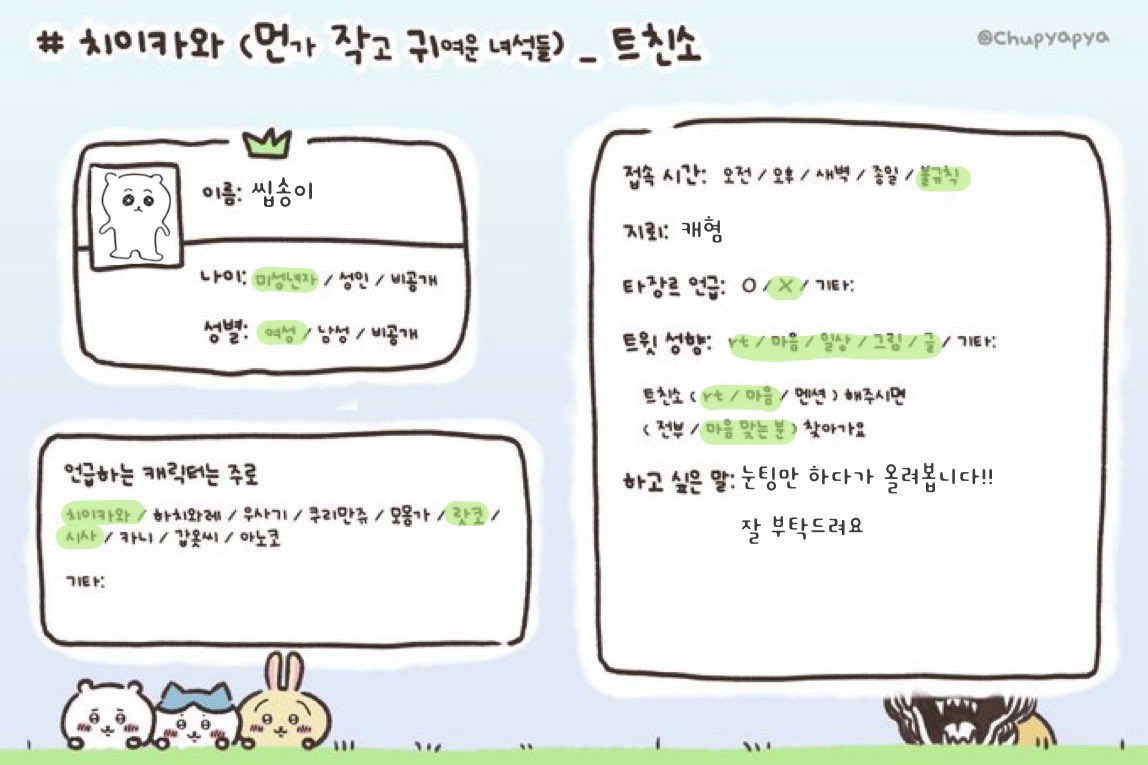 # 치이카와 (먼가 작고 귀여운 녀석들) _ 트친소
@Chupyapya
이름: 씹송이
나이: 미성년자 / 성인 / 비공개
성별: 여성 / 남성 / 비공개
언급하는 캐릭터는 주로
치이카와 / 하치와레 / 우사기 / 쿠리만쥬 / 모몽가 / 랏코 /
시사 / 카니 / 갑옷씨 / 아노코
기타:
접속 시간: 오전 / 오후 / 새벽 / 종일 / 불규칙
지뢰: 캐혐
타장르 언급: O / X / 기타:
트윗 성향: rt / 마음 / 일상 / 그림 / 글 / 기타:
트친소 ( rt / 마음 / 멘션 ) 해주시면
( 전부 / 마음 맞는 분 ) 찾아가요
하고 싶은 말: 눈팅만 하다가 올려봅니다!!
잘 부탁드려요